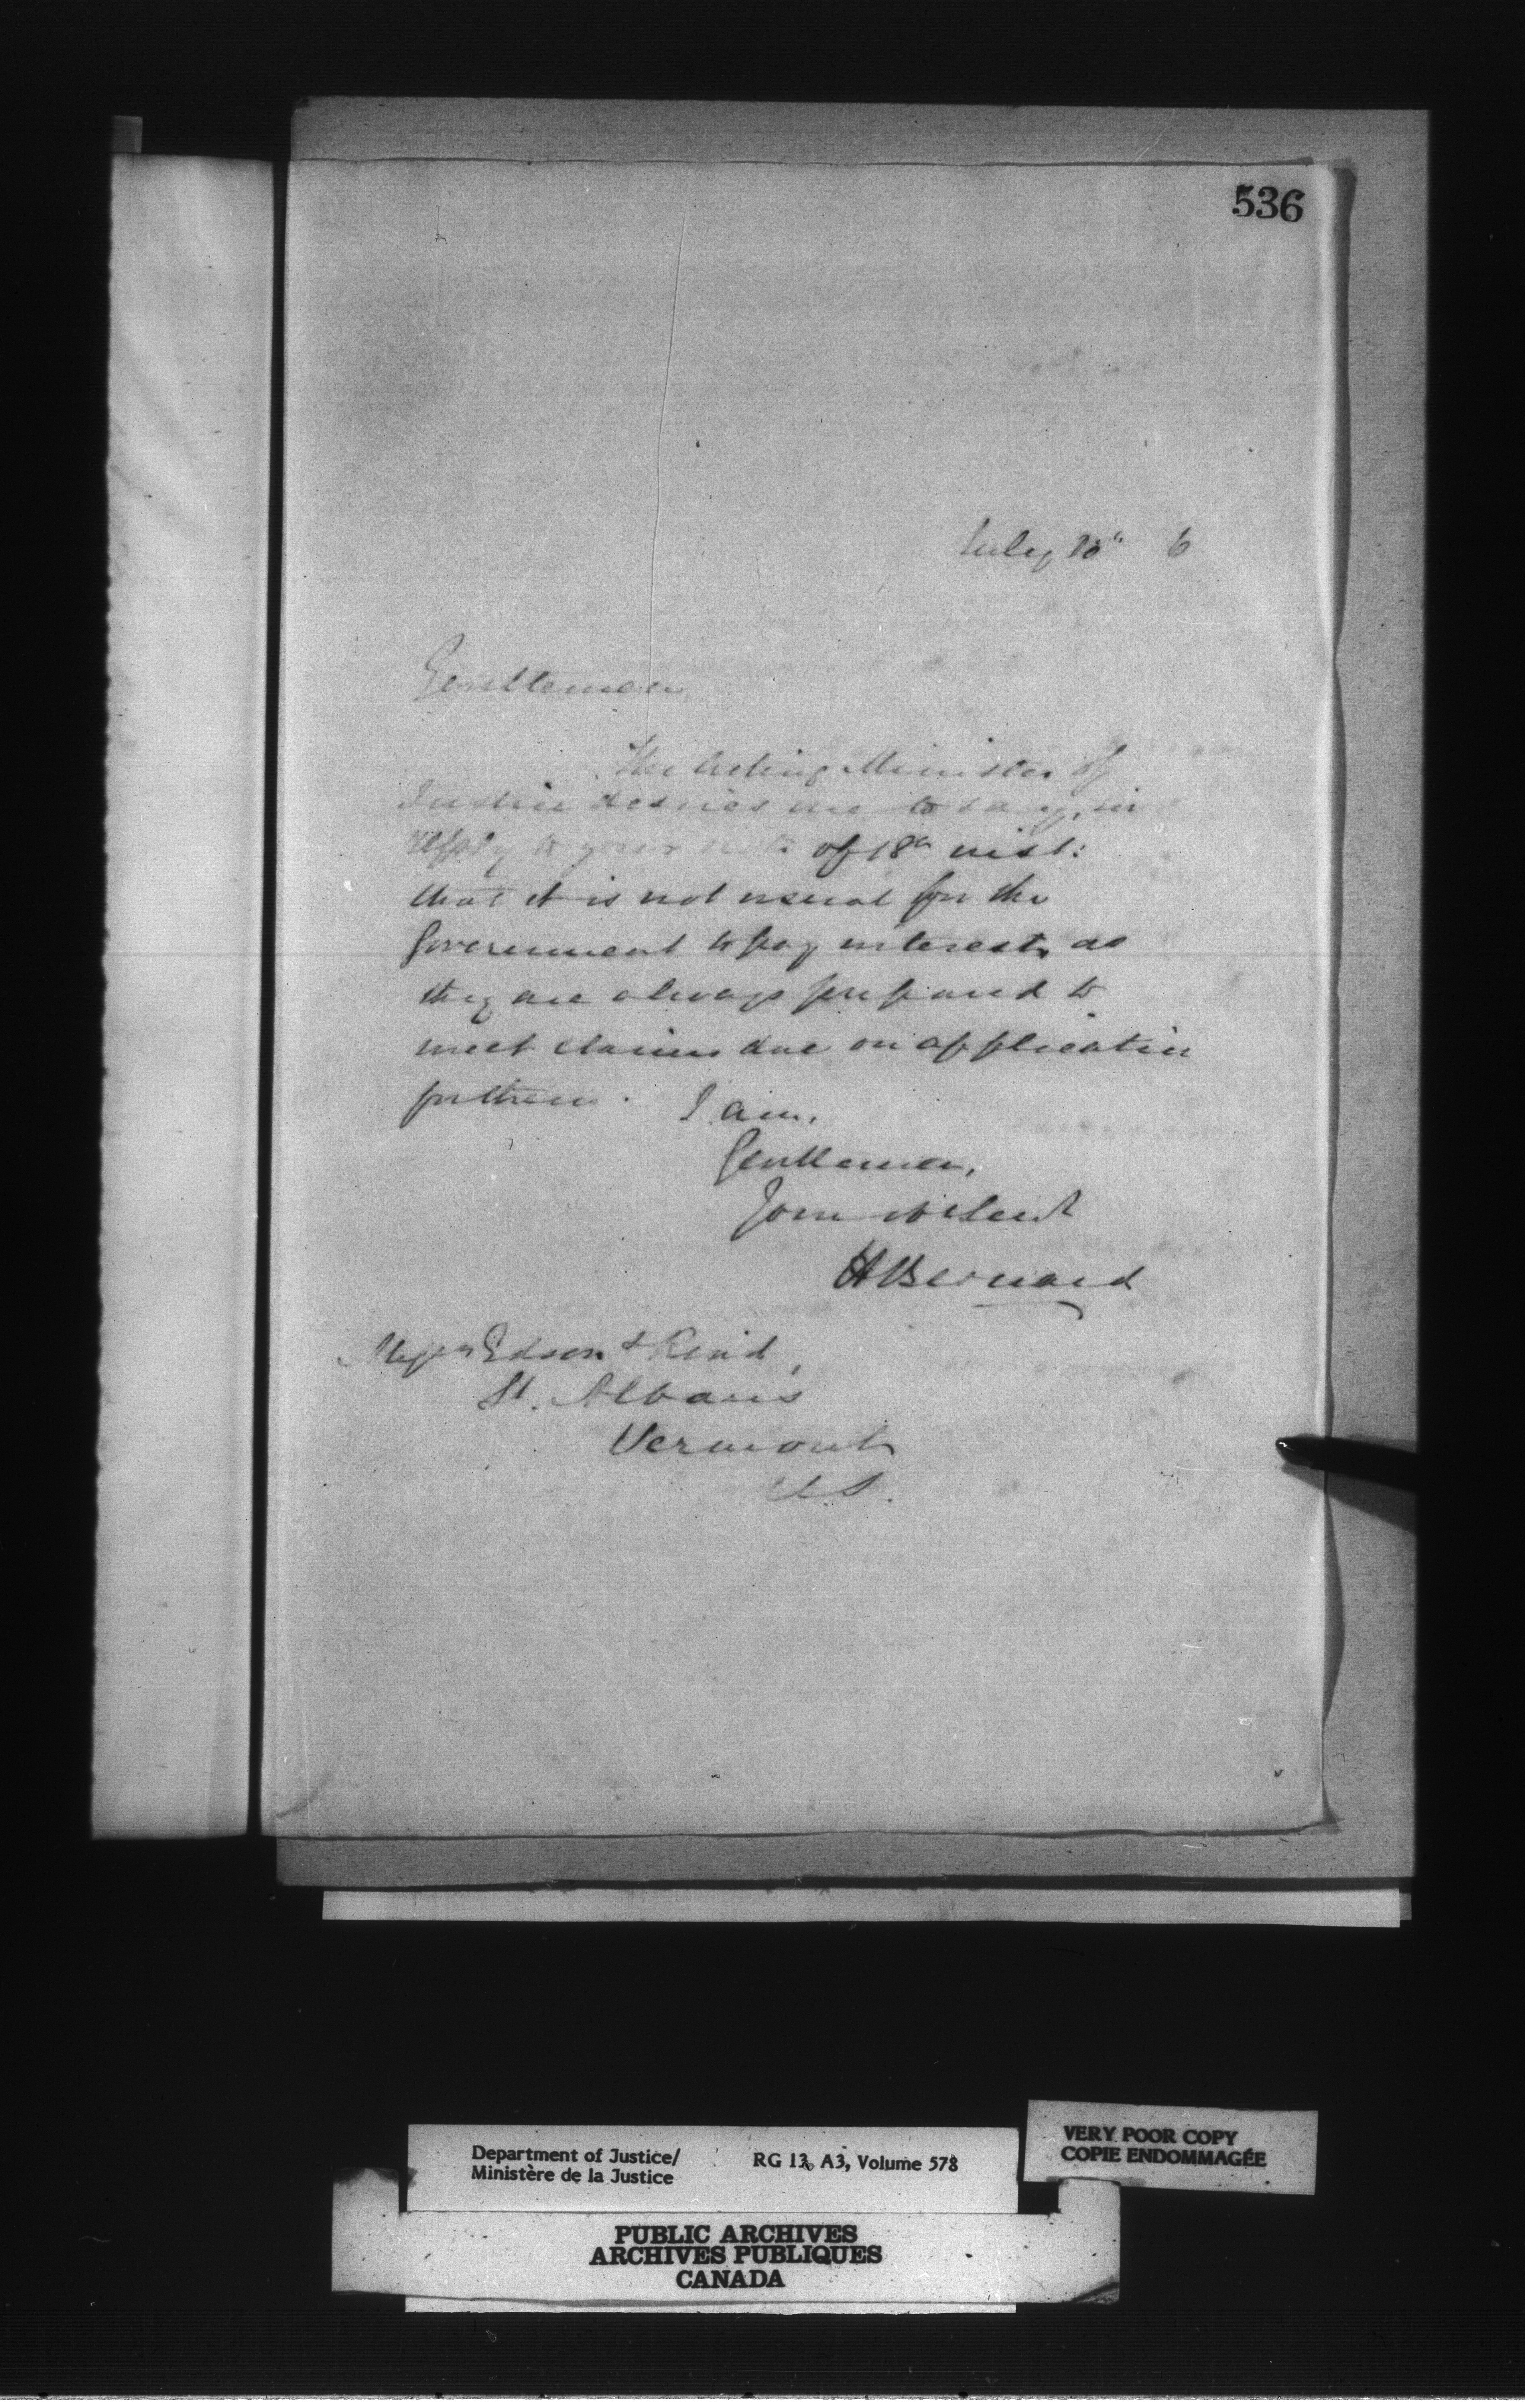 536
July 6
Gentlemen
The Acting Minister of
Justice desires me to say, in
reply to your note of 18th inst:
that it is not usual for the
Government to pay interest, as
they are always prepared to
meet claims due on application
for them. I am,
Gentlemen,
Your obdt servt
H Bernard
Messrs Edson &
St. Albans
Vermont
U.S.
Department of Justice/
Ministère de la Justice
RG 13, A3, Volume 578
VERY POOR COPY
COPIE ENDOMMAGÉE
PUBLIC ARCHIVES
ARCHIVES PUBLIQUES
CANADA